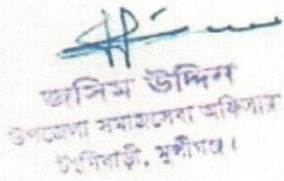 জসিম উদ্দিন
উপজেলা সমাজসেবা অফিসার
টংগিবাড়ী, মুন্সীগঞ্জ।